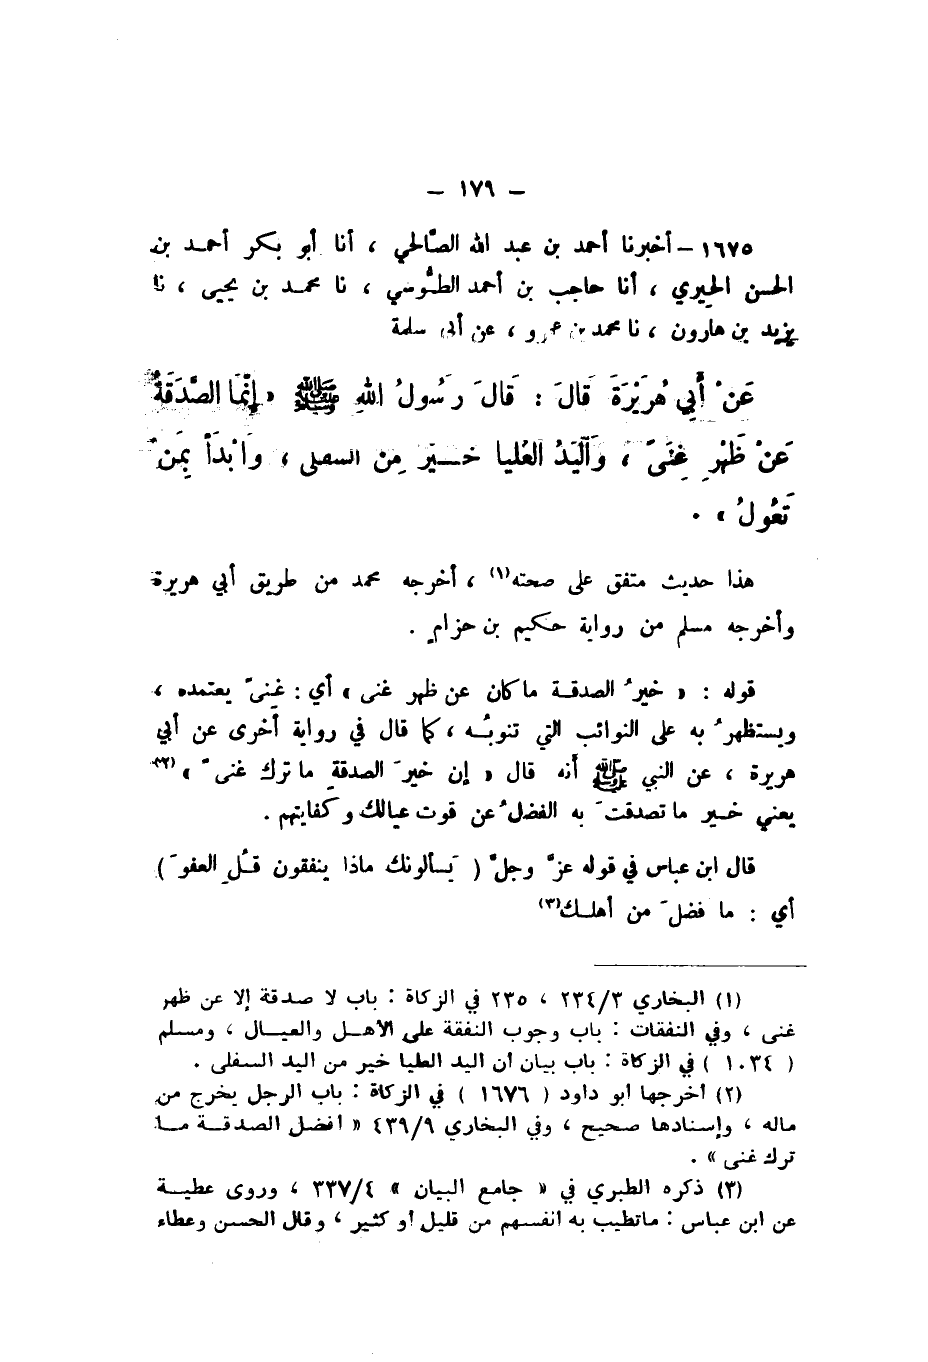 – ١٧٩ –
١٦٧٥ – أخبرنا أحمد بن عبد الله الصَّالحي ، أنا أبو بكر أحمـد بن
الحسن الحيري ، أنا حاجب بن أحمد الطُّوسي ، نا محمـد بن يحيى ، نا
يزيد بن هارون ، نا محمد بن عمرو ، عن أبي سلمة
عَنْ أَبِي هُرَيْرَةَ قَالَ : قَالَ رَسُولُ اللهِ ﷺ « إِنَّمَا الصَّدَقَةُ
عَنْ ظَهْرِ غِنَىً ، وَاَلْيَدُ العُليا خـيرٌ مِن السفلى ، وَابْدَأْ بِمَنْ
تَعُولُ » .
هذا حديث متفق على صحته(١) ، أخرجه محمد من طريق أبي هريرة
وأخرجه مسلم من رواية حكيم بن حزام .
قوله : « خيرُ الصدقـة ما كان عن ظهر غنى » أي : غِنىً يعتمده ،
ويستظهرُ به على النوائب التي تنوبُـه ، كما قال في رواية أخرى عن أبي
هريرة ، عن النبي ﷺ أنه قال « إن خيرَ الصدقةِ ما ترك غنىً » (٢)
يعني خـير ما تصدقتَ به الفضلُ عن قوت عيالك وكفايتهم .
قال ابن عباس في قوله عزَّ وجلَّ ( يَسألونك ماذا ينفقون قـُل العفوَ )
أي : ما فضلَ من أهلـك(٣)
(١) البخاري ٢٣٤/٣ ، ٢٣٥ في الزكاة : باب لا صدقة إلا عن ظهر
غنى ، وفي النفقات : باب وجوب النفقة على الأهـل والعيـال ، ومسلم
( ١٠٣٤ ) في الزكاة : باب بيان أن اليد العليا خير من اليد السفلى .
(٢) أخرجها أبو داود ( ١٦٧٦ ) في الزكاة : باب الرجل يخرج من
ماله ، وإسنادها صحيح ، وفي البخاري ٤٣٩/٩ « أفضـل الصدقـة مـا
ترك غنى » .
(٣) ذكره الطبري في « جامع البيان » ٣٣٧/٤ ، وروى عطيـة
عن ابن عباس : ماتطيب به أنفسهم من قليل أو كثير ، وقال الحسن وعطاء